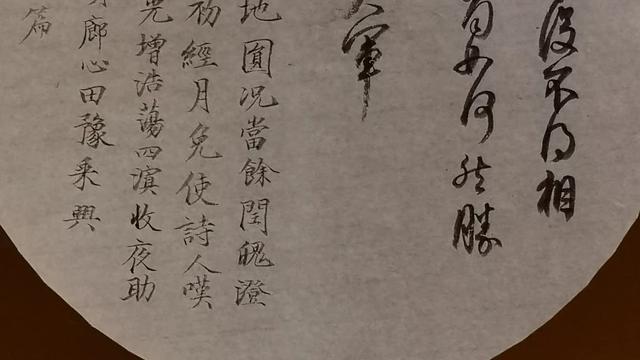 復不得相
何如何 然勝
軍
地圓况當餘閏魄澄
初經月免使詩人嘆
光增浩蕩四濵收夜助
廊心田豫采興
篇